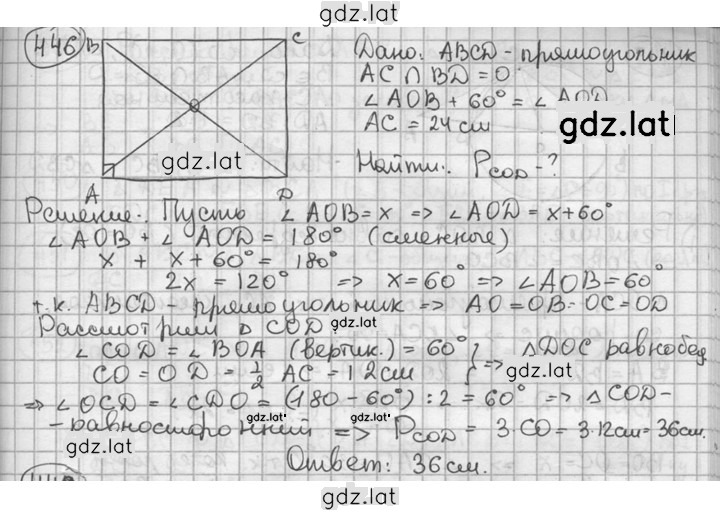 gdz.lat
446
B C
Дано: ABCD - прямоугольник
AC ∩ BD = O
∠AOB + 60° = ∠AOD
AC = 24 см
gdz.lat
O
gdz.lat
Найти: P_COD - ?
A D
Решение: Пусть ∠AOB = x => ∠AOD = x+60°
∠AOB + ∠AOD = 180° (смежные)
x + x + 60° = 180°
2x = 120° => x = 60° => ∠AOB = 60°
т.к. ABCD - прямоугольник => AO = OB = OC = OD
Рассмотрим △ COD gdz.lat
∠COD = ∠BOA (вертик.) = 60° } => △DOC равнобед
CO = OD = 1/2 AC = 12 см gdz.lat
=> ∠OCD = ∠CDO = (180 - 60°) : 2 = 60° => △COD -
gdz.lat gdz.lat
- равносторонний => P_COD = 3·CO = 3·12см = 36см.
gdz.lat
Ответ: 36 см.
gdz.lat